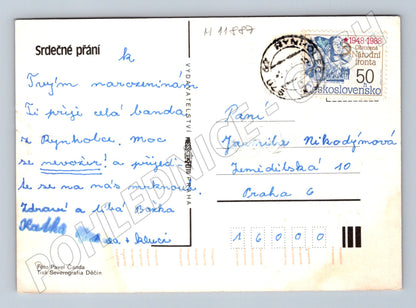 M 11887
Srdečné přání
k
Tvým narozeninám
Ti přeje celá banda
z Rynholce, moc
se nevožer! a přijeď
te se na nás mrknout.
Zdraví a líbá Božka
Katka a kluci
VYDAVATELSTVÍ PRAHA
RYNHOLEC
270 62
1948-1988
Obrozená
Národní
fronta
50
Československo
Paní
Jarmila Nikodýmová
Zemědělská 10
Praha 6
16000
Foto Pavel Ganda
Tisk Severografia Děčín
POHLEDNICE